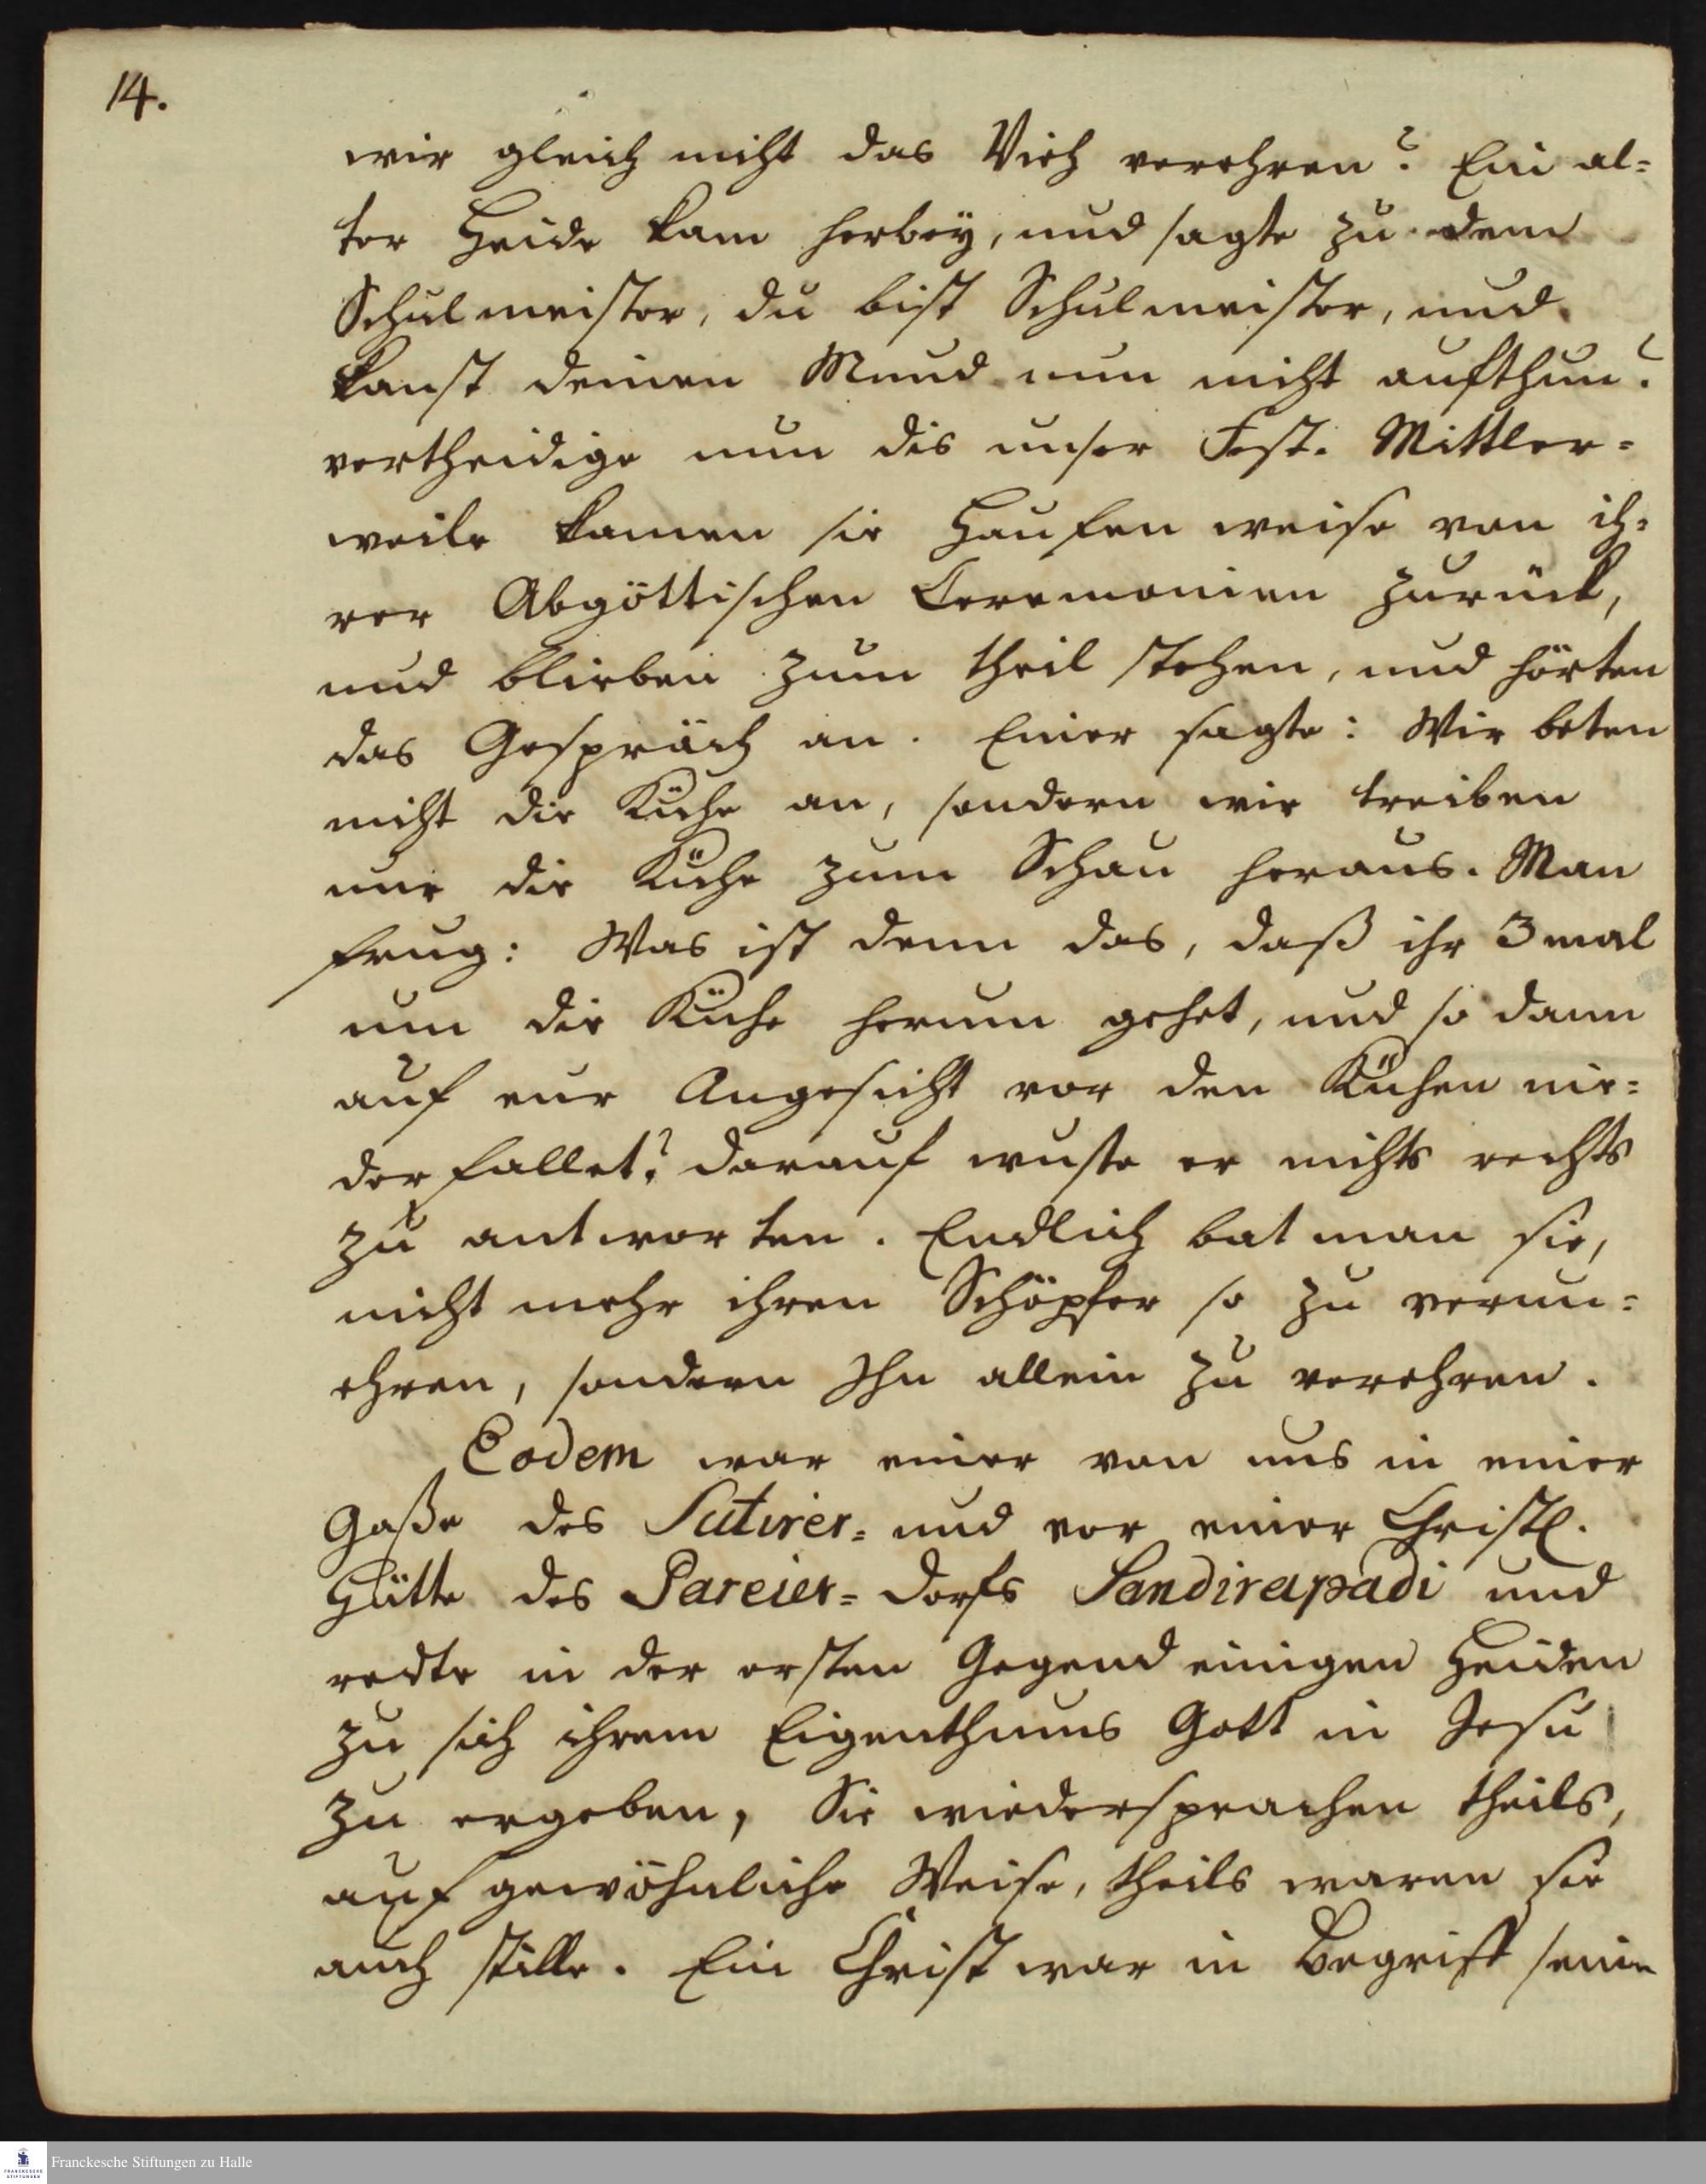 14.
wir gleich nicht das Vieh verehren? Ein al=
ter Heide kam herbey, und sagte zu dem
Schulmeister, du bist Schulmeister, und
kanst deinen Mund nun nicht aufthun?
vertheidige nun dis unser Fest. Mittler=
weile kamen sie Haufen weise von ih=
rer Abgöttischen Ceremonien zurück,
und blieben zum theil stehen, und hörten
das Gespräch an. Einer sagte: Wir beten
nicht die Kühe an, sondern wir treiben
nur die Kühe zum Schau heraus. Man
frug: Was ist denn das, daß ihr 3 mal
um die Kühe herum gehet, und so dann
auf eur Angesicht vor den Kühen nie=
der fallet? darauf wuste er nichts rechts
zu antworten. Endlich bat man sie,
nicht mehr ihren Schöpfer so zu verun=
ehren, sondern Ihn allein zu verehren.
Eodem war einer von uns in einer
Gaße des Sutirer= und vor einer Christl.
Hütte des Pareier= Dorfs Sandirapadi und
redte in der ersten Gegend einigen Heiden
zu sich ihrem Eigenthums Gott in Jesu
zu ergeben, Sie wiedersprachen theils,
auf gewöhnliche Weise, theils waren sie
auch stille. Ein Christ war in Begriff seine
Franckesche Stiftungen zu Halle
FRANCKESCHE
STIFTUNGEN